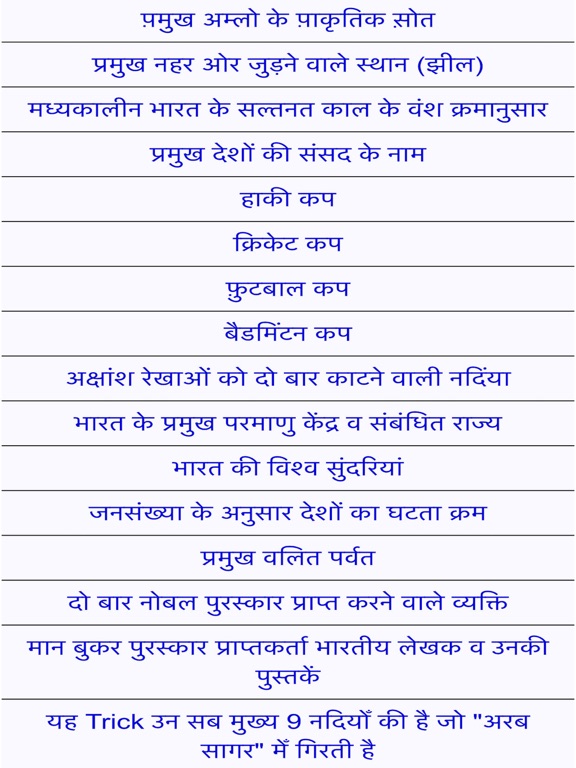 प़मुख अम्लो के प़ाकृतिक स़ोत
प्रमुख नहर ओर जुड़ने वाले स्थान (झील)
मध्यकालीन भारत के सल्तनत काल के वंश क्रमानुसार
प्रमुख देशों की संसद के नाम
हाकी कप
क्रिकेट कप
फ़ुटबाल कप
बैडमिंटन कप
अक्षांश रेखाओं को दो बार काटने वाली नदिंया
भारत के प्रमुख परमाणु केंद्र व संबंधित राज्य
भारत की विश्व सुंदरियां
जनसंख्या के अनुसार देशों का घटता क्रम
प्रमुख वलित पर्वत
दो बार नोबल पुरस्कार प्राप्त करने वाले व्यक्ति
मान बुकर पुरस्कार प्राप्तकर्ता भारतीय लेखक व उनकी
पुस्तकें
यह Trick उन सब मुख्य 9 नदियोँ की है जो "अरब
सागर" मेँ गिरती है